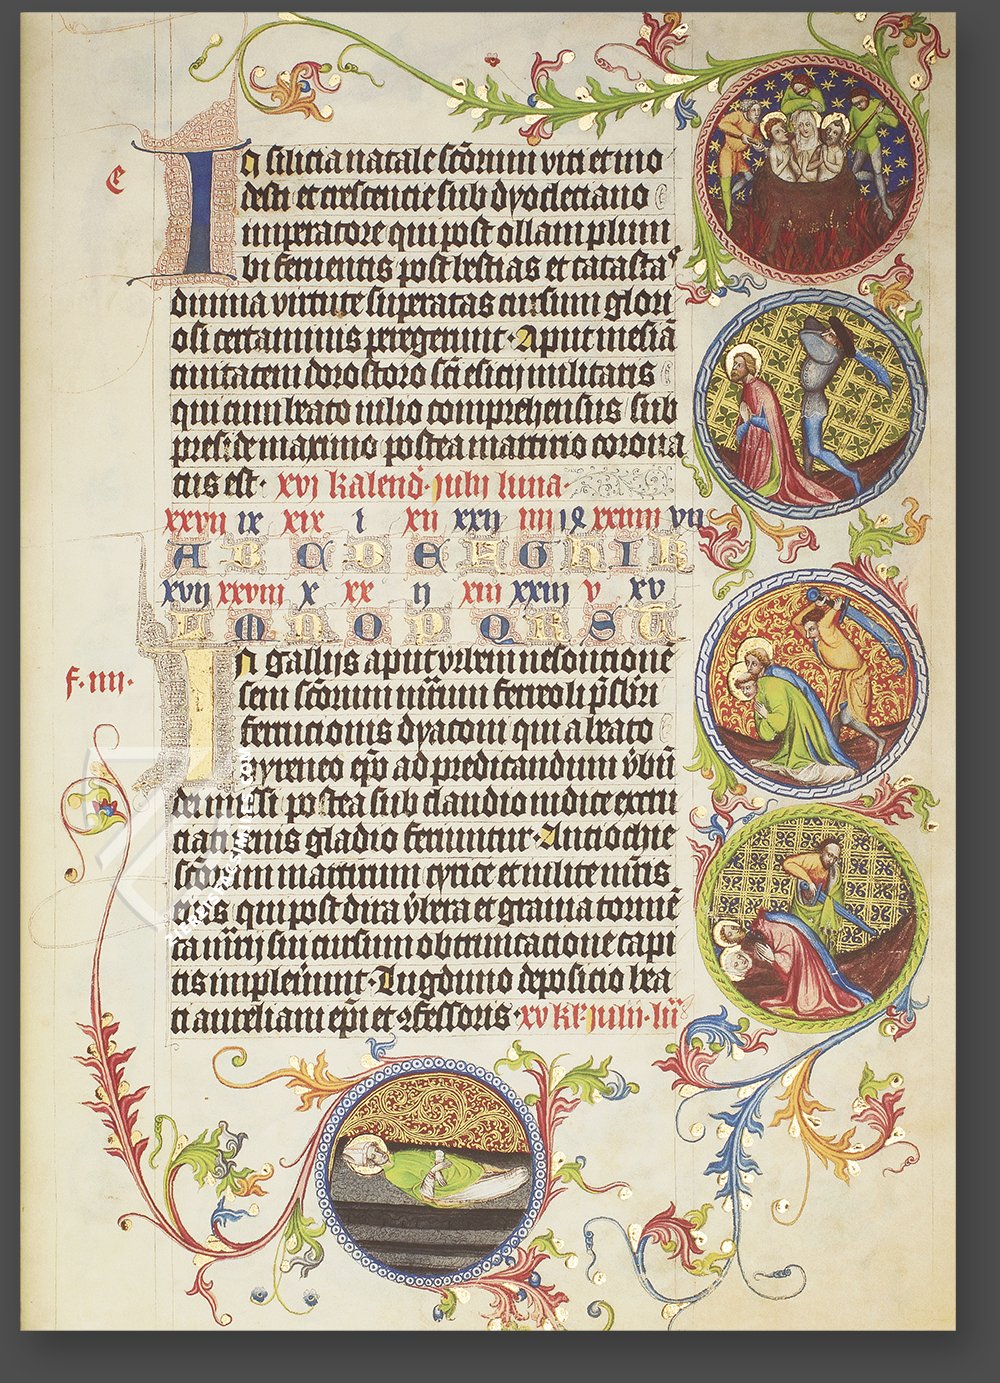 e
In silicia natale scōrum viti et mo
desti et crescencie sub dyocleciano
imperatore qui post ollam plum
bi feruentis post bestias et catasta
diuina virtute superatas cursum glori
osi certaminis peregerunt. Aput mesiā
ciuitatem dorostoro sc̄i esicij militaris
qui cum beato iulio comprehensus sub
preside maximo postea martirio corona
tus est. xvj kalend. julij luna.
xxvij ix xix i xij xxij iiij xxiiij vij
A B C D E F G H I K
xvij xxviij x xx ij xiij xxiij v xv
L M N O P Q R S T
f. iiij.
In gallijs aput vrbem uesoncionē
sem scōrum m̄rum ferreoli p̄sbri
ferrucionis dyaconi qui a beato
hyreneo ep̄o ad predicandum v̄bū
dei missi postea sub claudio iudice excru
ciati senis gladio feriuntur. Antiochie
scōrum martirum cyrice et
qui post dira v̄bera et grauia tormē
ta m̄rij sui cursum obtruncacione capi
tis impleuerunt. Lugduno deposicio bea
ti aureliani ep̄i et ꝯfessoris. xv kl̄ julij. lu